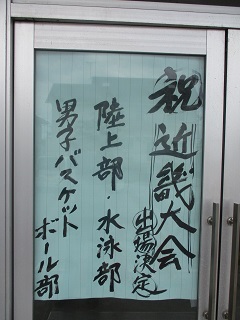 祝近畿大会
出場決定
陸上部・水泳部
男子バスケット
ボール部